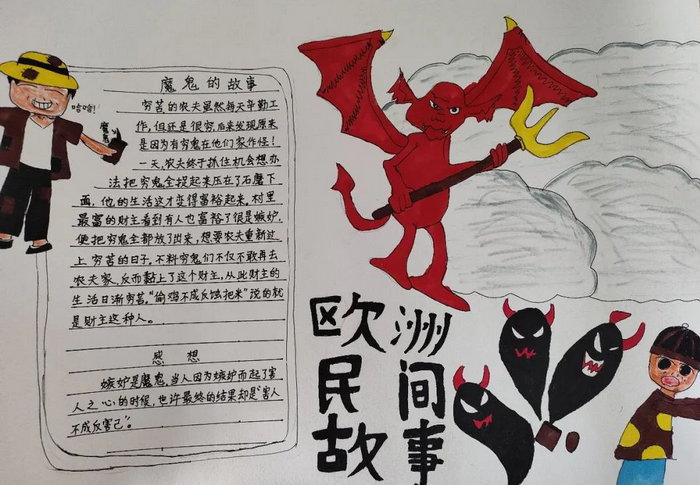 魔鬼的故事
哈哈!
穷苦的农夫虽然每天辛勤工
作,但还是很穷,后来发现原来
是因为有穷鬼在他们家作怪!
一天,农夫终于抓住机会想办
法把穷鬼全捉起来压在了石磨下
面,他的生活这才变得富裕起来,村里
最富的财主看到有人也富裕了很是嫉妒,
便把穷鬼全部放了出来,想要农夫重新过
上穷苦的日子,不料穷鬼们不仅不敢再去
农夫家,反而黏上了这个财主,从此财主的
生活日渐穷苦,"偷鸡不成反蚀把米"说的就
是财主这种人。
感想
嫉妒是魔鬼,当人因为嫉妒而起了害
人之心的时候,也许最终的结果却是"害人
不成反害己"。
欧洲
民间
故事